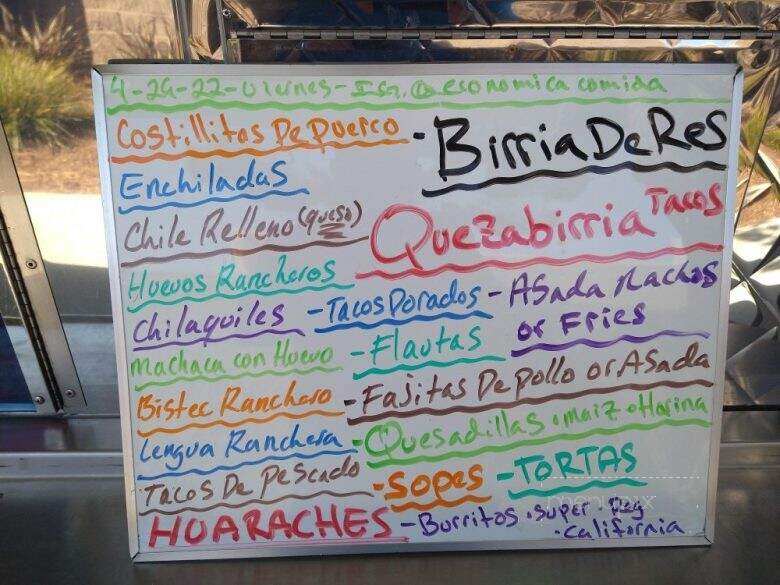 4-29-22-Viernes-IG. @economica comida
Costillitas De Puerco - Birria De Res
Enchiladas
Chile Relleno (queso) Quezabirria Tacos
Huevos Rancheros
Chilaquiles - Tacos Dorados - Asada Nachos
or Fries
Machaca con Huevo - Flautas
Bistec Ranchero - Fajitas De pollo or Asada
Lengua Ranchera - Quesadillas • maiz • Harina
Tacos De Pescado - Sopes - TORTAS
HUARACHES - Burritos • super • Reg
• California